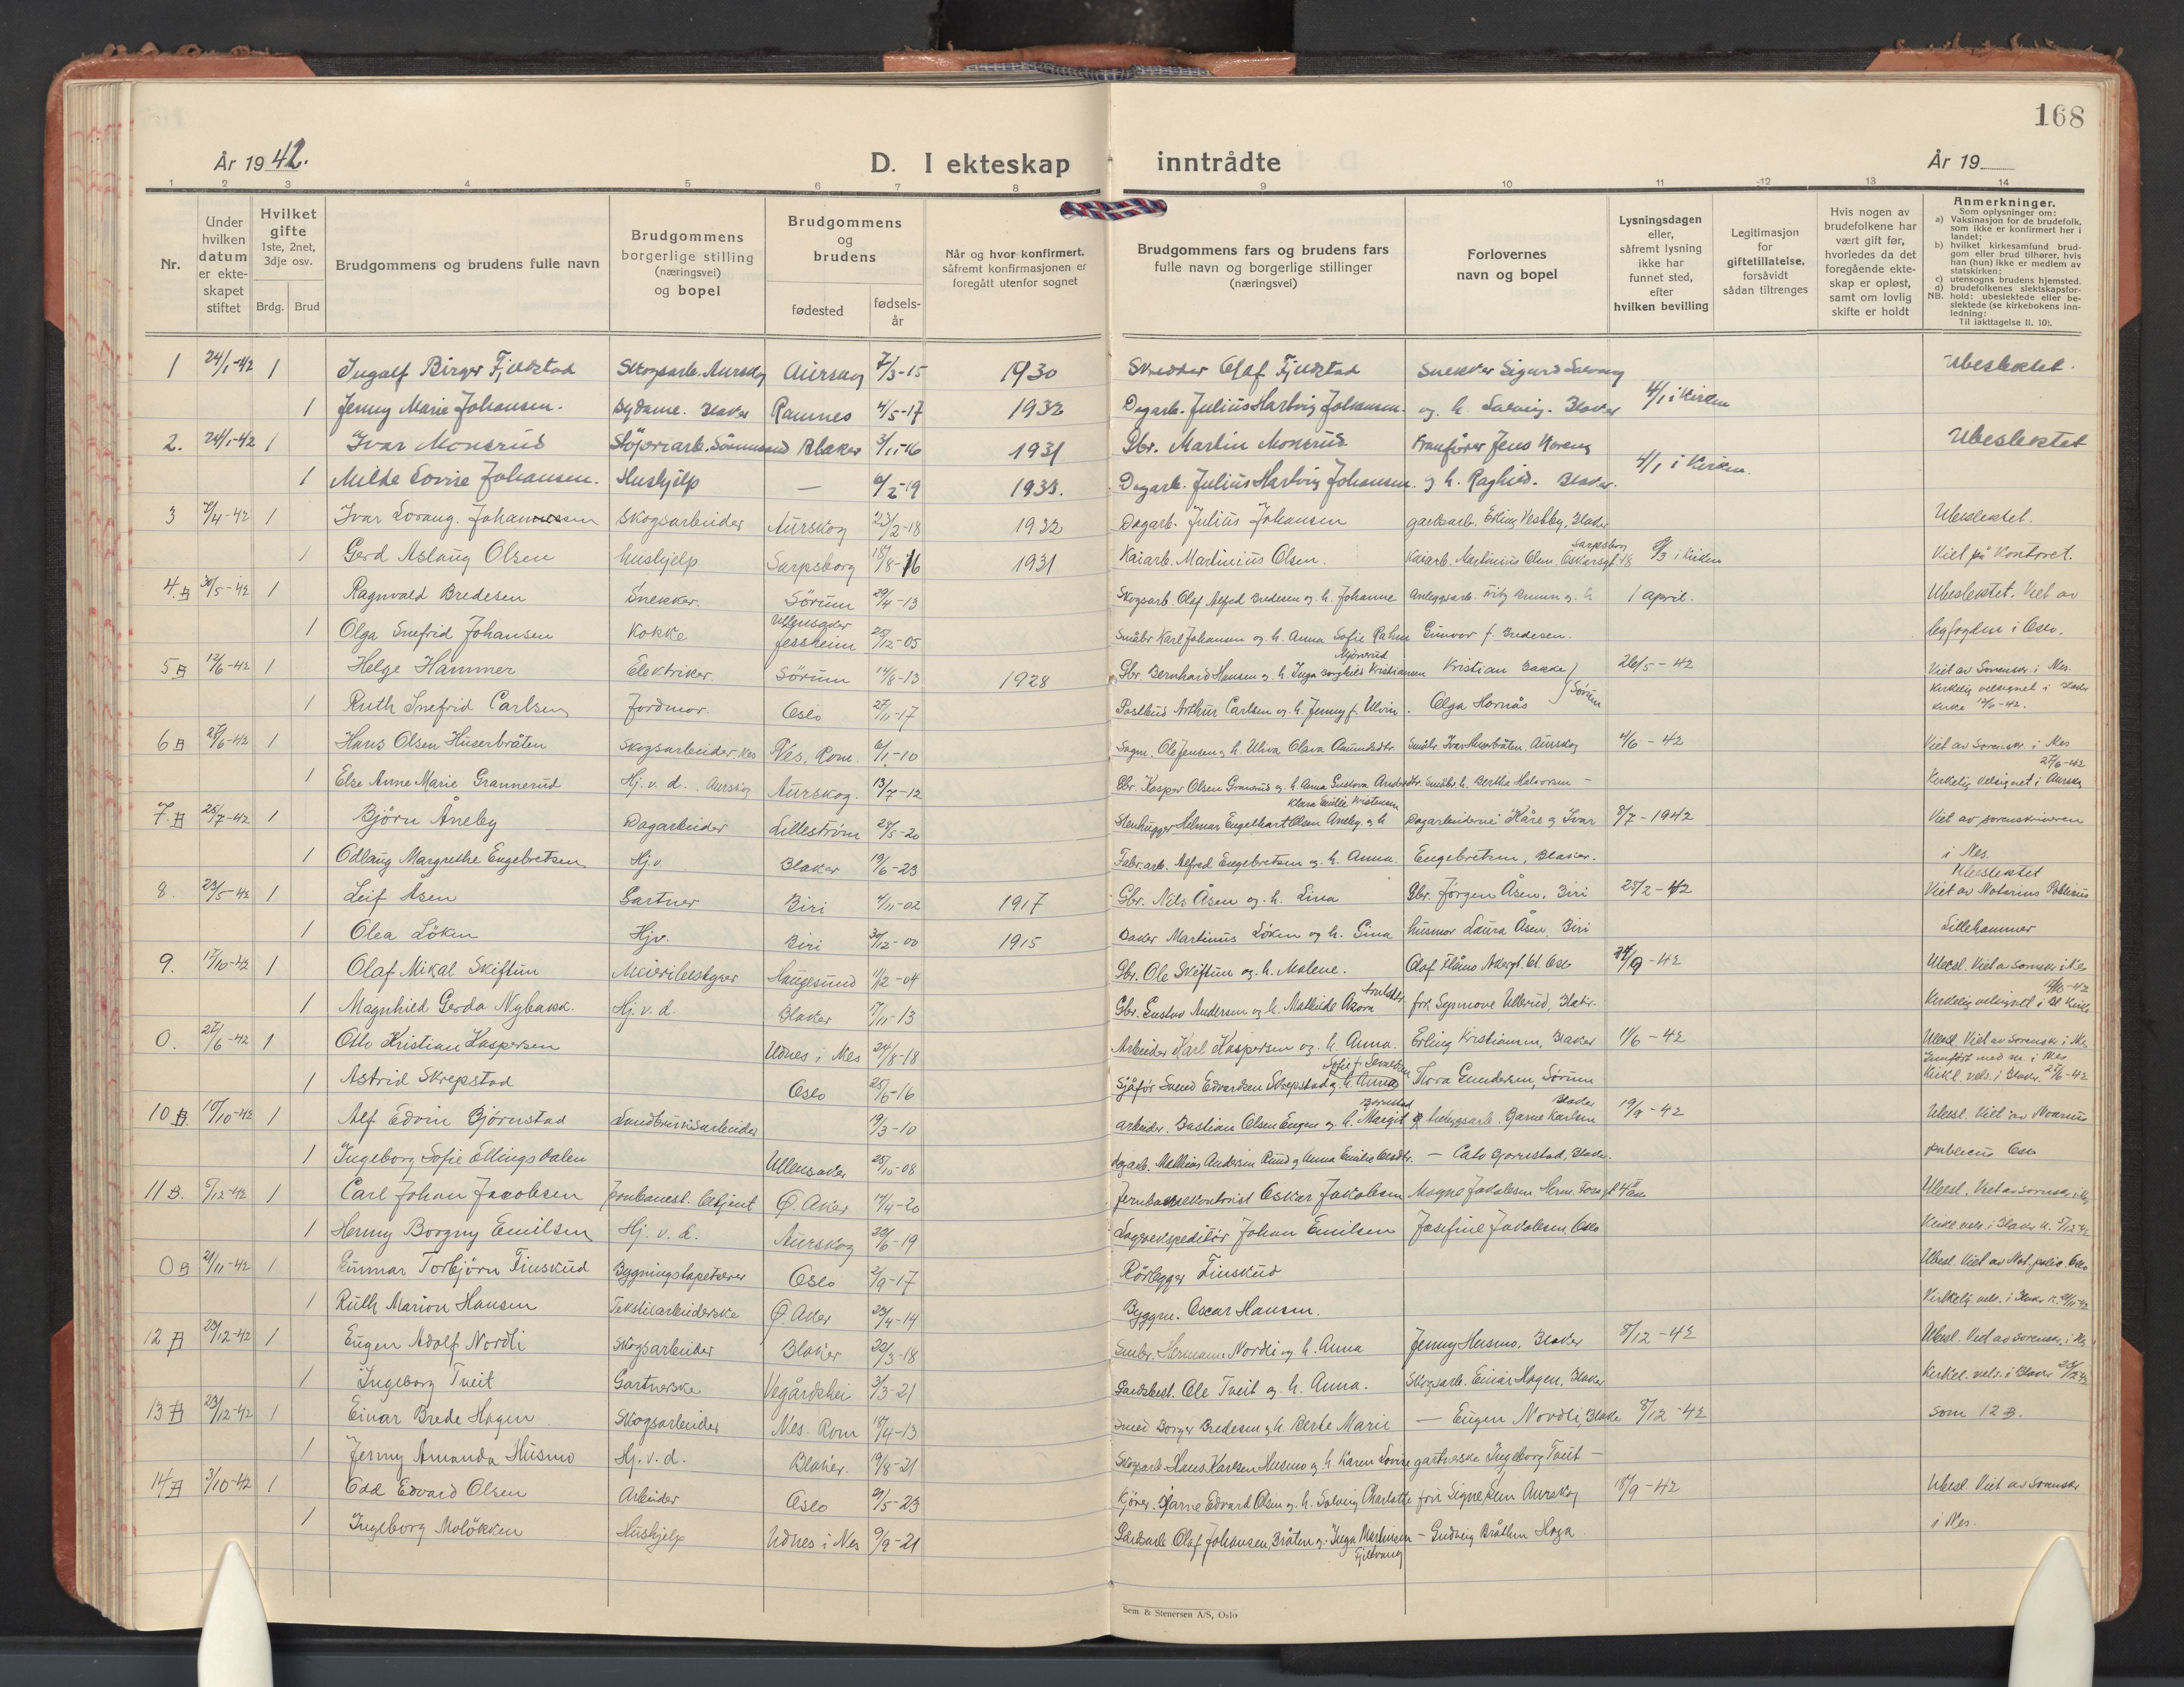 168
År 1942.
D. I ekteskap inntrådte
År 19
1 2 3 4 5 6 7 8 9 10 11 12 13 14
Nr.
Under hvilken datum er ekteskapet stiftet
Hvilket gifte 1ste, 2net, 3dje osv.
Brdg. Brud
Brudgommens og brudens fulle navn
Brudgommens borgerlige stilling (næringsvei) og bopel
Brudgommens og brudens
fødested
fødselsår
Når og hvor konfirmert, såfremt konfirmasjonen er foregått utenfor sognet
Brudgommens fars og brudens fars fulle navn og borgerlige stillinger (næringsvei)
Forlovernes navn og bopel
Lysningsdagen eller, såfremt lysning ikke har funnet sted, efter hvilken bevilling
Legitimasjon for giftetillatelse, forsåvidt sådan tiltrenges
Hvis nogen av brudefolkene har vært gift før, hvorledes da det foregående ekteskap er opløst, samt om lovlig skifte er holdt
Anmerkninger.
Som oplysninger om:
a) Vaksinasjon for de brudefolk, som ikke er konfirmert her i landet;
b) hvilket kirkesamfund brudgom eller brud tilhører, hvis han (hun) ikke er medlem av statskirken;
c) utensogns brudens hjemsted.
d) brudefolkenes slektskapsforhold: ubeslektede eller beslektede (se kirkebokens innledning:
NB.
Til iakttagelse II. 10).
1 24/1-42 1 Ingolf Birger Fjeldstad Skogsarb. Aurskog Aurskog 7/3-15 1930 Skredder Olaf Fjeldstad Snekker Sigurd Solvang Ubeslektet.
1 Jenny Marie Johansen. Sydame. Blaker Ramnes 4/5-17 1932 Dagarb. Julius Hartvig Johansen. og h. Solveig. Blaker 4/1 i Kirken
2. 24/1-42 1 Ivar Monsrud Blaker 3/11-16 1931 Gbr. Martin Monsrud Jens Ubeslektet
1 Milde Lovise Johansen. Hushjelp — 6/2-19 1933. Dagarb. Julius Hartvig Johansen. og h. Blaker. 4/1 i Kirken.
3 7/4-42 1 Ivar Johanssen Skogsarbeider Aurskog 23/2-18 1932 Dagarb. Julius Johansen Vestby, Blaker Ubeslektet.
1 Gerd Aslaug Olsen Hushjelp Sarpsborg 18/8-16 1931 Kaiarb. Martinius Olsen. Kaiarb. Martinius Olsen. Oskarsgt. 48 Sarpsborg 8/3 i Kirken Viet på Kontoret.
4. B 30/5-42 1 Ragnvald Bredesen Snekker. Sörum 29/4-13 Skogsarb. Olaf Alfred Bredesen og h. Johanne Anleggsarb. og h. 1 april. Ubeslektet. Viet av
1 Olga Snefrid Johansen Kokke Ullensaker Jessheim 25/12-05 Småbr Karl Johansen og h. Anna Sofie Gunvor f. Bredesen. byfogden i Oslo.
5 B 12/6-42 1 Helge Hammer Elektriker. Sörum 14/6-13 1928 Gbr. Bernhard Hansen og h. Inga Borghild Kristiansen Kristian Bakke 26/5-42 Viet av Sorenskr. i Nes.
1 Ruth Snefrid Carlsen Jordmor. Oslo 27/11-17 Postbud Arthur Carlsen og h. Jenny f. Ulvin. Olga Hornås Sørum Kirkelig velsignet i Blaker kirke 14/6-42.
6 B 27/6-42 1 Hans Olsen Huserbråten Skogsarbeider. Nes Nes, Rom. 6/1-10 Ole Jensen og h. Olava Amundsdtr. Småbr. Ivar Huserbråten, Aurskog 4/6-42 Viet av Sorenskr. i Nes
1 Else Anne Marie Grannerud Hj. v. d. Aurskog Aurskog. 13/7-12 Gbr. Kasper Olsen Granerud og h. Anna Gustava Andersdtr. h. Bertha Halvorsen — 27/6-42 Kirkelig velsignet i Aurskog
7. B 25/7-42 1 Björn Åneby Dagarbeider Lilleström 28/5-20 Stenhugger Helmar Engelhart Olsen Aneby og h Klara Emilie Kristensen Dagarbeiderne Kåre og Ivar 8/7-1942 Viet av sorenskriveren
1 Odlaug Margrethe Engebretsen Hj.v. Blaker 19/6-23 Fabr.arb. Alfred Engebretsen og h. Anna. Engebretsen, Blaker. i Nes.
8. 23/5-42 1 Leif Åsen Gartner Biri 4/11-02 1917 Gbr. Nils Åsen og h. Lina Gbr. Jörgen Åsen, Biri 25/2-42 Ubeslektet Viet av Notarius Publicus
1 Olea Löken Hjv. Biri 30/12-00 1915 Baker Martinus Löken og h. Gina husmor Laura Åsen, Biri Lillehammer
9. 17/10-42 1 Olaf Mikal Skiftun Meieribestyrer Haugesund 11/2-04 Gbr. Ole Skiftun og h. Malene. Olaf Oslo 24/9-42 Ubesl. Viet av sorenskr. i Nes
1 Magnhild Gerda Nybakk. Hj. v. d. Blaker 17/11-13 Gbr. Gustav Andersen og h. Mathilde frk. Synnøve Ullerud, Blaker. Kirkelig velsignet i Bl. Kirke 17/10-42
0. 27/6-42 1 Otto Kristian Kaspersen Udnes i Nes 24/8-18 Arbeider Karl Kaspersen og h. Anna. Erling Kristiansen, Blaker 11/6-42 Ubesl. Viet av Sorenskr. i Nes
1 Astrid Skrepstad Oslo 25/6-16 Sjåför Svend Edvardsen Skrepstad og h. Anna Thora Gundersen, Sörum Kirkl. vels. i Blaker. 27/6-42
10 B. 10/10-42 1 Alf Edvin Bjørnstad Landbruksarbeider 19/3-10 arbeider. Bastian Olsen Engen og h. Margit Bjarne Karlsen Blaker 19/9-42 Ubesl. Viet av Notarius
1 Ingeborg Sofie Ellingsdalen Ullensaker 25/10-08 dagarb. Mathias Andersen Ruud og Anna Emilie — Cato Blaker. publicus Oslo
11 B. 5/12-42 1 Carl Johan Jacobsen Jernbanest. betjent Ø. Aker 14/4-20 Jernbanekontorist Oskar Jakobsen Magne Jakobsen Ubesl. Viet av Sorenskr. i Nes
1 Henny Borgny Emilsen Hj. v. d. Aurskog 20/6-19 Lagerekspeditör Johan Emilsen Josefine Jakobsen, Oslo Kirkl. vels. i Blaker K. 5/12-42
0 B 21/11-42 1 Gunnar Torbjörn Finskud Bygningstapetserer Oslo 2/9-17 Rörlegger Finskud Ubesl. Viet av Not. public Oslo
1 Ruth Marion Hansen Tekstilarbeiderske Ø. Aker 23/4-14 Byggm. Oscar Hansen. Kirkelig vels. i Blaker K. 21/11-42
12 B 29/12-42 1 Eugen Adolf Nordli Skogsarbeider Blaker 20/3-18 Småbr. Hermann Nordli og h. Anna Jenny Husmo, Blaker 8/12-42 Ubesl. Viet av sorenskr. i Nes
1 Ingeborg Tveit Gartnerske Vegårdshei 3/3-21 Gardsbest. Ole Tveit og h. Anna. Skogsarb. Einar Hagen, Blaker Kirkel. vels. i Blaker 29/12-42
13 B 29/12-42 1 Einar Brede Hagen Skogsarbeider Nes. Rom 18/4-13 Smed Borger Bredesen og h. Berte Marie — Eugen Nordli, Blaker 8/12-42 Som 12 B.
1 Jenny Amanda Husmo Hj. v. d. Blaker. 19/8-21 Skogsarb. Hans Karlsen Husmo og h. Karen Lovise gartnerske Ingeborg Tveit —
14 B 3/10-42 1 Odd Edvard Olsen Arbeider Oslo 9/5-23 Kjörer. Bjarne Edvard Olsen og h. Solveig Charlotte fru Signe Aurskog 18/9-42 Ubesl. Viet av Sorenskr
1 Ingeborg Molökken Hushjelp Udnes i Nes 9/9-21 Gårdsarb. Olaf Johansen, Bråten og Inga Martinsen Fjellvang — Gudveig Bråthen Haga. i Nes.
Sem & Stenersen A/S, Oslo